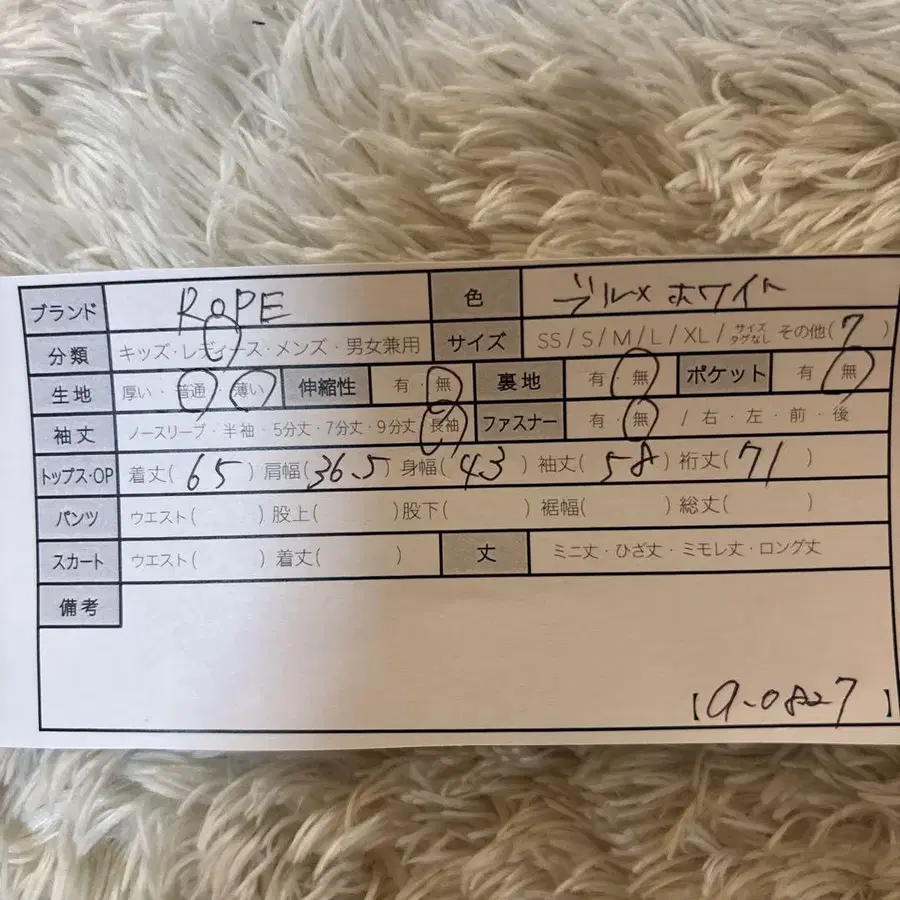 ブランド ROPE 色 ブル× ホワイト
分類 キッズ・レディース・メンズ・男女兼用 サイズ SS / S / M / L / XL / サイズタグなし その他( 7 )
生地 厚い・普通・薄い 伸縮性 有・無 裏地 有・無 ポケット 有・無
袖丈 ノースリーブ・半袖・5分丈・7分丈・9分丈・長袖 ファスナー 有・無 / 右・左・前・後
トップス・OP 着丈( 65 ) 肩幅( 36.5 ) 身幅( 43 ) 袖丈( 58 ) 裄丈( 71 )
パンツ ウエスト( ) 股上( ) 股下( ) 裾幅( ) 総丈( )
スカート ウエスト( ) 着丈( ) 丈 ミニ丈・ひざ丈・ミモレ丈・ロング丈
備考
【 a-0827 】